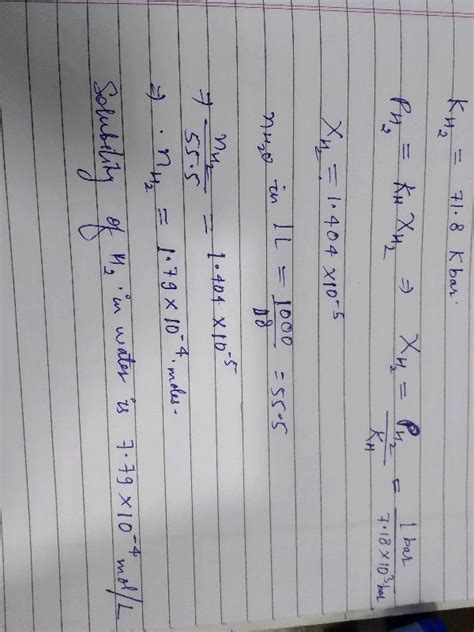 K_H2 = 71.8 K bar.
P_H2 = K_H X_H2 ⇒ X_H2 = P_H2 / K_H = 1 bar / 7.18×10³ bar
X_H2 = 1.404 ×10⁻⁵
n_H2O in 1L = 1000 / 18 = 55.5
⇒ n_H2 / 55.5 = 1.404 ×10⁻⁵
⇒ n_H2 = 1.79 × 10⁻⁴ moles.
Solubility of H2 in water is 7.79×10⁻⁴ mol/L